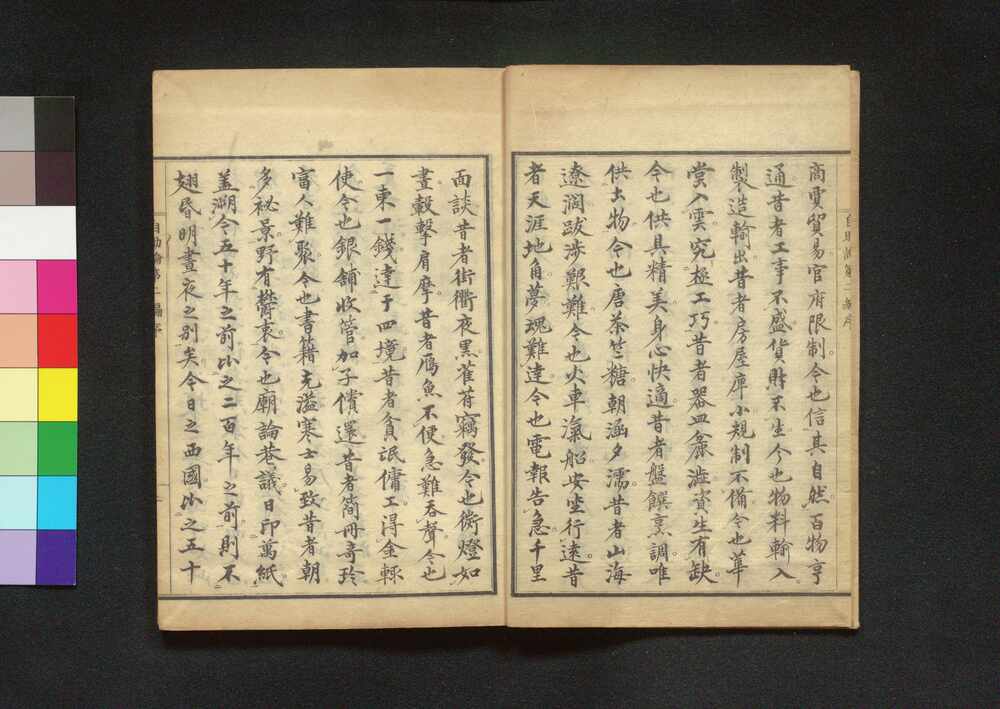 商賈貿易官府限制。今也信其自然百物亨
通昔者工事不盛貨財不生今也物料輸入。
製造輸出昔者房屋庫小規制不備今也華
甞入雲究極工巧昔者器皿麁澁資生有缺。
今也供具精美身心快適昔者盤饌烹調唯
供土物今也唐茶竺糖。朝涵夕濡。昔者山海
遼濶跋渉艱難今也火車滊船安坐行遠。昔
者天涯地角夢魂難達今也電報告急。千里
面談昔者街衢夜黒萑苻竊發今也街燈如
晝轂撃肩摩昔者鴈魚不便急難吞聲今也
一柬一錢達于四境昔者貧氓傭工得金輙
使今也銀舖收管加子償還昔者簡冊奇珍
富人難聚今也書籍充溢寒士易致昔者朝
多祕景野有欝衷今也廟論巷議日印萬紙。
盖溯今五十年之前比之二百年之前則不
翅昏明晝夜之別矣今日之西國比之五十
自助論第一編序